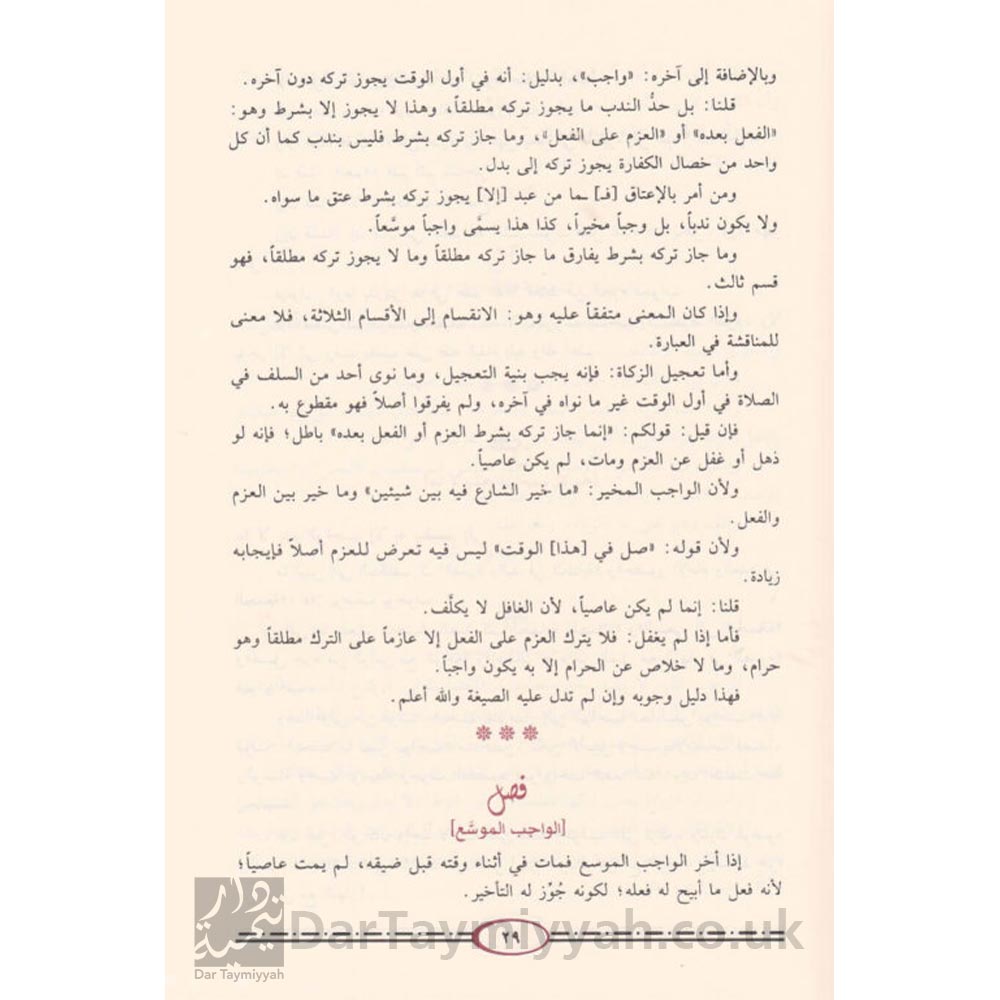 وبالإضافة إلى آخره: «واجب»، بدليل: أنه في أول الوقت يجوز تركه دون آخره.
قلنا: بل حدُّ الندب ما يجوز تركه مطلقاً، وهذا لا يجوز إلا بشرط وهو:
«الفعل بعده» أو «العزم على الفعل»، وما جاز تركه بشرط فليس بندب كما أن كل
واحد من خصال الكفارة يجوز تركه إلى بدل.
ومن أمر بالإعتاق [فـ] ـما من عبد [إلا] يجوز تركه بشرط عتق ما سواه.
ولا يكون ندباً، بل وجباً مخيراً، كذا هذا يسمَّى واجباً موسَّعاً.
وما جاز تركه بشرط يفارق ما جاز تركه مطلقاً وما لا يجوز تركه مطلقاً، فهو
قسم ثالث.
وإذا كان المعنى متفقاً عليه وهو: الانقسام إلى الأقسام الثلاثة، فلا معنى
للمناقشة في العبارة.
وأما تعجيل الزكاة: فإنه يجب بنية التعجيل، وما نوى أحد من السلف في
الصلاة في أول الوقت غير ما نواه في آخره، ولم يفرقوا أصلاً فهو مقطوع به.
فإن قيل: قولكم: «إنما جاز تركه بشرط العزم أو الفعل بعده» باطل؛ فإنه لو
ذهل أو غفل عن العزم ومات، لم يكن عاصياً.
ولأن الواجب المخير: «ما خير الشارع فيه بين شيئين» وما خير بين العزم
والفعل.
ولأن قوله: «صل في [هذا] الوقت» ليس فيه تعرض للعزم أصلاً فإيجابه
زيادة.
قلنا: إنما لم يكن عاصياً، لأن الغافل لا يكلَّف.
فأما إذا لم يغفل: فلا يترك العزم على الفعل إلا عازماً على الترك مطلقاً وهو
حرام، وما لا خلاص عن الحرام إلا به يكون واجباً.
فهذا دليل وجوبه وإن لم تدل عليه الصيغة والله أعلم.
فصل
[الواجب الموسَّع]
إذا أخر الواجب الموسع فمات في أثناء وقته قبل ضيقه، لم يمت عاصياً؛
لأنه فعل ما أبيح له فعله؛ لكونه جُوِّز له التأخير.
٢٩
DarTaymiyyah.co.uk
Dar Taymiyyah